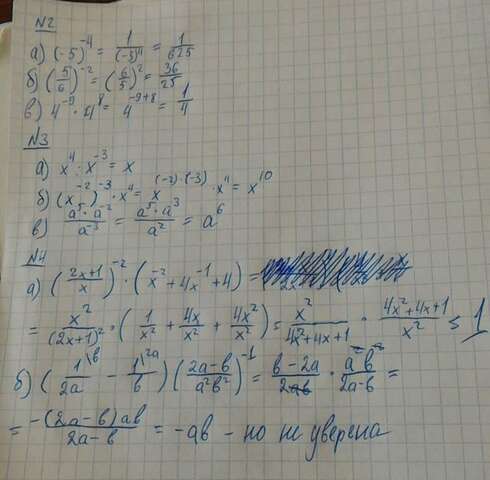 N2
а) (-5)^-4 = 1/(-5)^4 = 1/625
б) (5/6)^-2 = (6/5)^2 = 36/25
в) 4^-9 · 4^8 = 4^-9+8 = 1/4
N3
а) x^4 · x^-3 = x
б) (x^-2)^-3 · x^4 = x^(-2)·(-3) · x^4 = x^10
в) a^5 · a^-2 / a^-3 = a^5 · a^3 / a^2 = a^6
N4
а) (2x+1/x)^-2 · (x^-2 + 4x^-1 + 4) =
= x^2/(2x+1)^2 · (1/x^2 + 4x/x^2 + 4x^2/x^2) = x^2/4x^2+4x+1 · 4x^2+4x+1/x^2 = 1
б) (1/2a \b - 1/b \2a) (2a-b/a^2b^2)^-1 = b-2a/2ab · a^2b^2/2a-b =
= -(2a-b)ab/2a-b = -ab - но не уверена